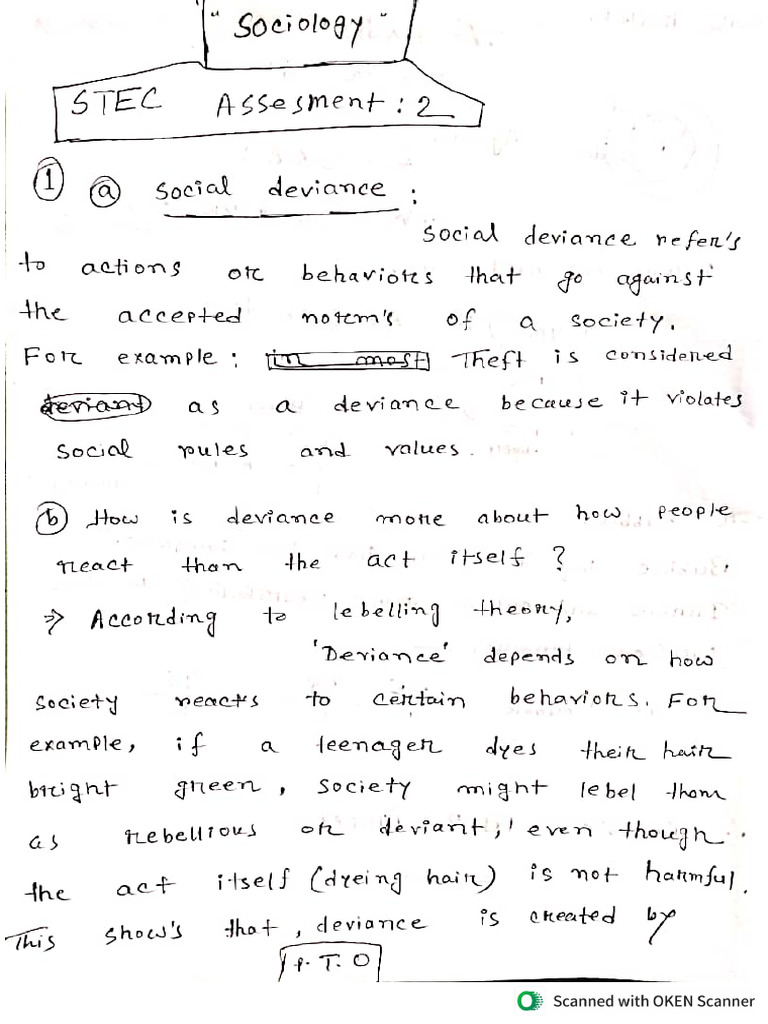 "Sociology"
STEC Assesment : 2
1 a social deviance :
social deviance refer's
to actions or behaviors that go against
the accepted norm's of a society.
For example : in most Theft is considered
deviant as a deviance because it violates
social rules and values.
b How is deviance more about how people
react than the act itself ?
⇒ According to lebelling theory,
'Deviance' depends on how
society reacts to certain behaviors. For
example, if a teenager dyes their hair
bright green, society might lebel them
as rebellious or deviant, even though
the act itself (dyeing hair) is not harmful.
This show's that, deviance is created by
P. T. O
Scanned with OKEN Scanner